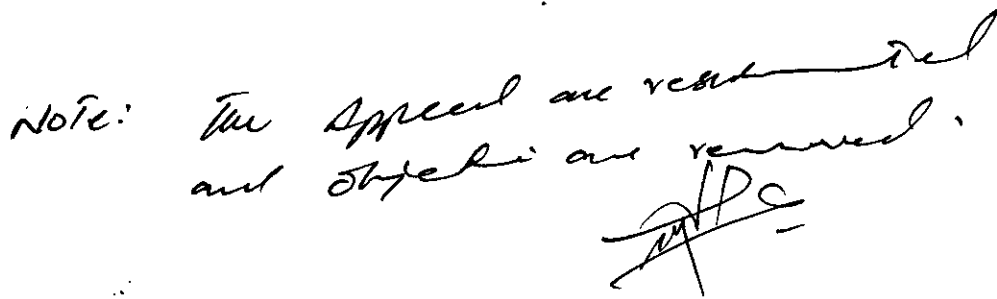 Note: The Appeal are resubmitted
and objectio are removed.